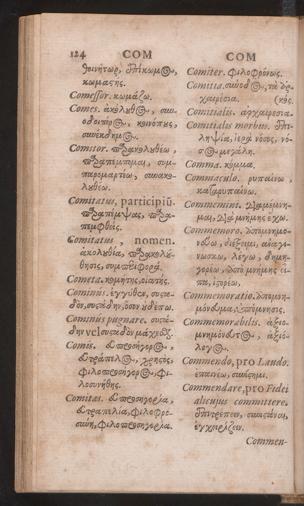 124 COM
θοινήτωρ, ἐπίκωμος,
κωμαστής.
Comessor. κωμάζω.
Comes. ἀκόλουθος, συν-
οδοιπόρος, κοινόπους,
συνέκδημος.
Comitor. παρακολουθέω,
παραπέμπομαι, συμ-
παρομαρτέω, συνακο-
λουθέω.
Comitatus, participiū.
παραπέμψας, παρα-
πεμφθείς.
Comitatus, nomen.
ἀκολουθία, παρακολού-
θησις, συμπεριφορά.
Cometa. κομήτης,
Cominus. ἐγγύθεν, συστα-
δόν,
Cominus pugnare. συστα-
δην vel συσταδὸν μάχεσθαι.
Comis. εὐπροσήγορος,
εὐτράπελος, χρηστός,
φιλοπροσήγορος, φι-
λοσυνήθης.
Comitas. εὐπροσηγορία,
εὐτραπελία, φιλοφρο-
σύνη, φιλοπροσηγορία.
COM
Comiter. φιλοφρόνως.
Comitia. σύνοδος, τὰ ἀρ-
χαιρέσια. (κός.
Comitialis. ἀρχαιρεσια-
Comitialis morbus. ἐπι-
ληψία, ἱερὰ νόσος, νό-
σος μεγάλη.
Comma. κόμμα.
Commaculo. ῥυπαίνω,
καταρρυπαίνω.
Commemini. διαμέμνη-
μαι, διὰ μνήμης ἔχω.
Commemoro. ἀπομνημο-
νεύω, διέξειμι, ἀναγι-
νώσκω, λέγω, δημη-
γορέω, ἀπὸ μνήμης εἰ-
πα, ἱστορέω.
Commemoratio. ἀπομνη-
μόνευμα, ὑπόμνησις.
Commemorabilis. ἀξιο-
μνημόνευτος, ἀξιό-
λογος.
Commendo, pro Laudo.
ἐπαινέω, συνίστημι.
Commendare, pro Fidei
alicujus committere.
ἐπιτρέπειν, συνιστάναι,
ἐγχειρίζειν.
Commen-